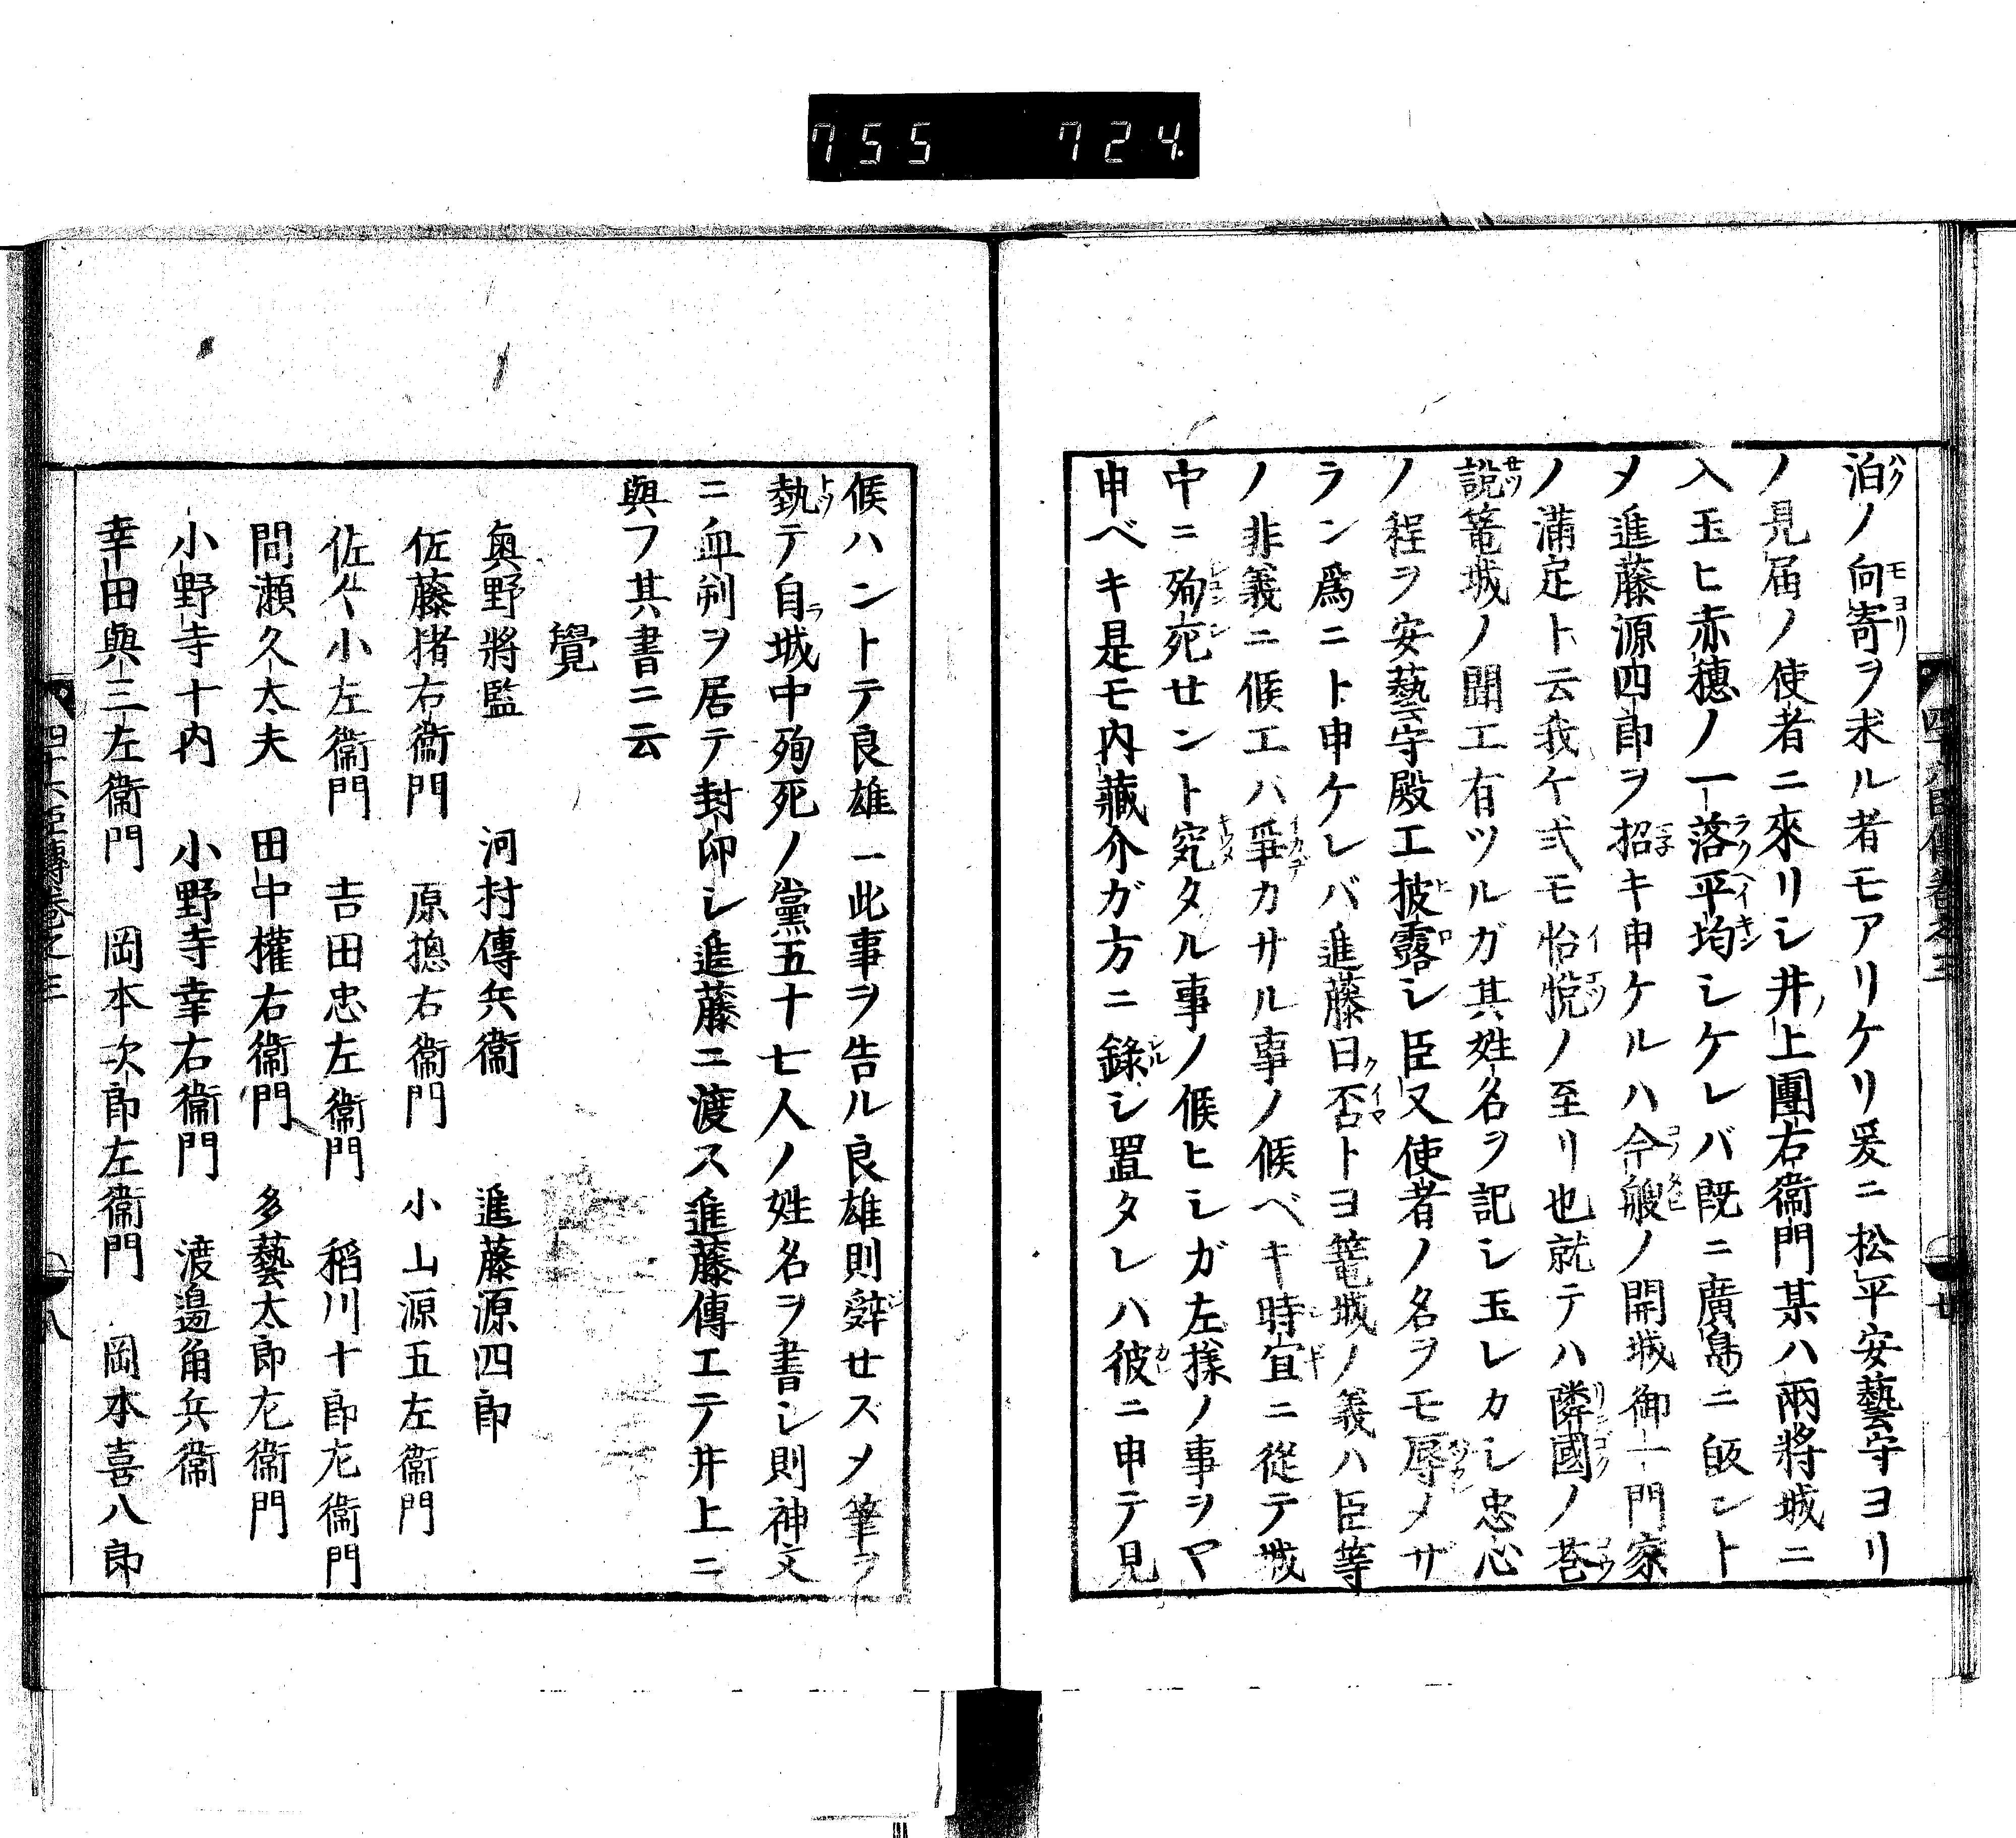 755 724.
泊ノ向寄ヲ求ル者モアリケリ爰ニ松平安藝守ヨリ
ノ見届ノ使者ニ來リシ井上團右衞門某ハ兩將城ニ
入玉ヒ赤穗ノ一落平均シケレバ既ニ廣島ニ皈ント
メ進藤源四郎ヲ招キ申ケルハ今般ノ開城御一門家
ノ満定ト云我ケ弐モ怡悦ノ至リ也就テハ隣國ノ巷
說篭城ノ聞エ有ツルガ其姓名ヲ記シ玉レカシ忠心
ノ程ヲ安藝守殿エ披露シ臣又使者ノ名ヲモ辱メザ
ラン爲ニト申ケレバ進藤曰否トヨ篭城ノ義ハ臣等
ノ非義ニ候エハ爭カサル事ノ候ベキ時宜ニ從テ城
中ニ殉死せント究タル事ノ候ヒシガ左樣ノ事ヲヤ
申ベキ是モ内藏介ガ方ニ錄シ置タレハ彼ニ申テ見
候ハントテ良雄一此事ヲ告ル良雄則辤せスメ筆ヲ
執テ自城中殉死ノ黨五十七人ノ姓名ヲ書シ則神文
ニ血判ヲ居テ封印シ進藤ニ渡ス進藤傳エテ井上ニ
與フ其書ニ云
覺
奥野將監 河村傳兵衞 進藤源四郎
佐藤猪右衞門 原摠右衞門 小山源五左衞門
佐々小左衞門 吉田忠左衞門 稻川十郎左衞門
間瀬久太夫 田中權右衞門 多藝太郎左衞門
小野寺十内 小野寺幸右衞門 渡邊角兵衞
幸田與三左衞門 岡本次郎左衞門 岡本喜八郎
四十六臣傳卷之三 八